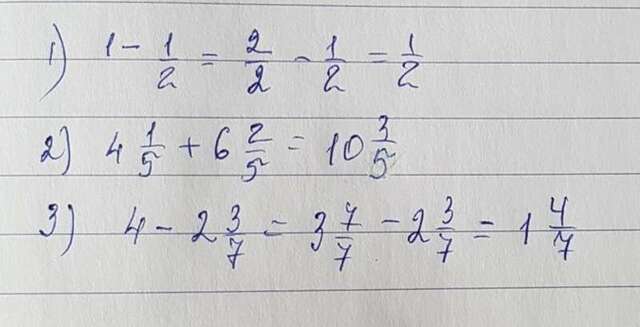 1) 1 - 1/2 = 2/2 - 1/2 = 1/2
2) 4 1/5 + 6 2/5 = 10 3/5
3) 4 - 2 3/7 = 3 7/7 - 2 3/7 = 1 4/7